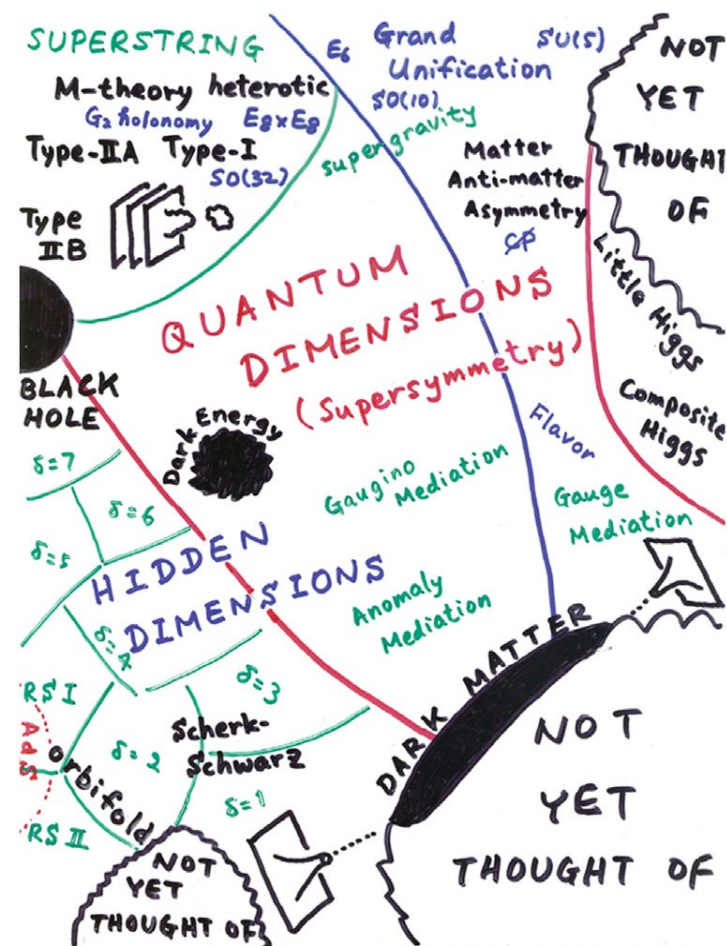 SUPERSTRING
M-theory heterotic
G₂ holonomy E8xE8
Type-IIA Type-I
SO(32)
Type
IIB
E₆
Grand
Unification
SU(5)
SO(10)
supergravity
Matter
Anti-matter
Asymmetry
CP
NOT
YET
THOUGHT
OF
Little Higgs
Composite
Higgs
QUANTUM
DIMENSIONS
(Supersymmetry)
BLACK
HOLE
Dark Energy
Flavor
Gaugino
Mediation
Gauge
Mediation
Anomaly
Mediation
δ=7
δ=6
δ=5
HIDDEN
DIMENSIONS
δ=4
δ=3
RS I
AdS
RS II
orbifold
δ=2
Scherk-
Schwarz
δ=1
DARK MATTER
NOT
YET
THOUGHT OF
NOT
YET
THOUGHT OF